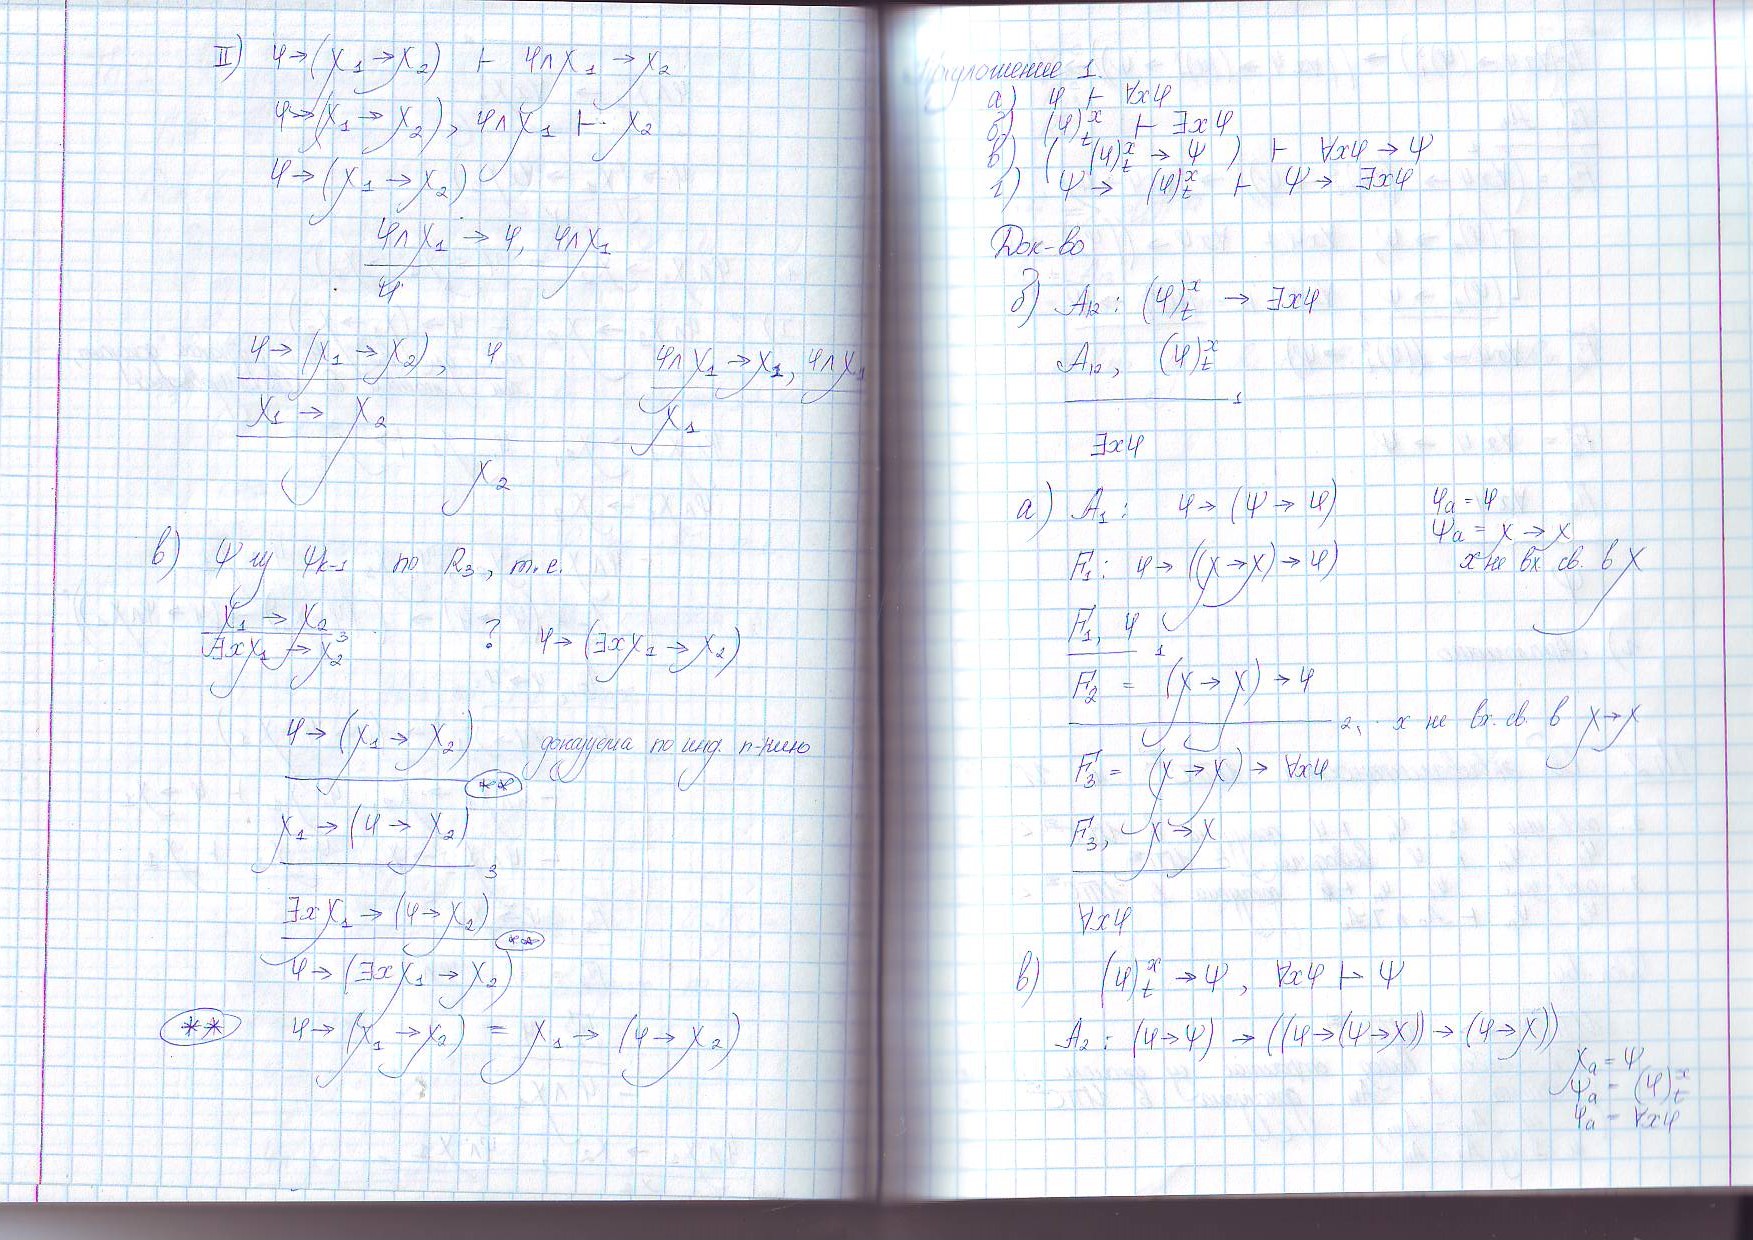 II) φ→(χ₁→χ₂) ⊢ φ∧χ₁→χ₂
φ→(χ₁→χ₂), φ∧χ₁ ⊢ χ₂
φ→(χ₁→χ₂)
φ∧χ₁→φ, φ∧χ₁
φ
φ→(χ₁→χ₂), φ φ∧χ₁→χ₁, φ∧χ₁
χ₁→χ₂ χ₁
χ₂
в) ψ из ψₖ₋₁ по R₃, т.е.
χ₁→χ₂ 3
∃xχ₁→χ₂ ? φ→(∃xχ₁→χ₂)
φ→(χ₁→χ₂) доказуема по инд. п-нию
**
χ₁→(φ→χ₂)
3
∃xχ₁→(φ→χ₂)
**
φ→(∃xχ₁→χ₂)
** φ→(χ₁→χ₂) = χ₁→(φ→χ₂)
Приложение 1.
а) φ ⊢ ∀xφ
б) (φ)ˣₜ ⊢ ∃xφ
в) ((φ)ˣₜ→ψ) ⊢ ∀xφ→ψ
г) ψ→(φ)ˣₜ ⊢ ψ→∃xφ
Док-во
б) A₁₂: (φ)ˣₜ → ∃xφ
A₁₂, (φ)ˣₜ
1
∃xφ
а) A₁: φ→(ψ→φ) φₐ=φ
ψₐ=χ→χ
F₁: φ→((χ→χ)→φ) x не вх. св. в χ
F₁, φ
1
F₂ = (χ→χ)→φ
2, x не вх. св. в χ→χ
F₃ = (χ→χ)→∀xφ
F₃, χ→χ
∀xφ
в) (φ)ˣₜ→ψ, ∀xφ ⊢ ψ
A₂: (φ→ψ)→((φ→(ψ→χ))→(φ→χ))
χₐ=ψ
ψₐ=(φ)ˣₜ
φₐ=∀xφ